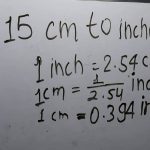 15 cm to inche
1 inch = 2.54 c
1cm = 1/2.54 inc
1 cm = 0.394 in